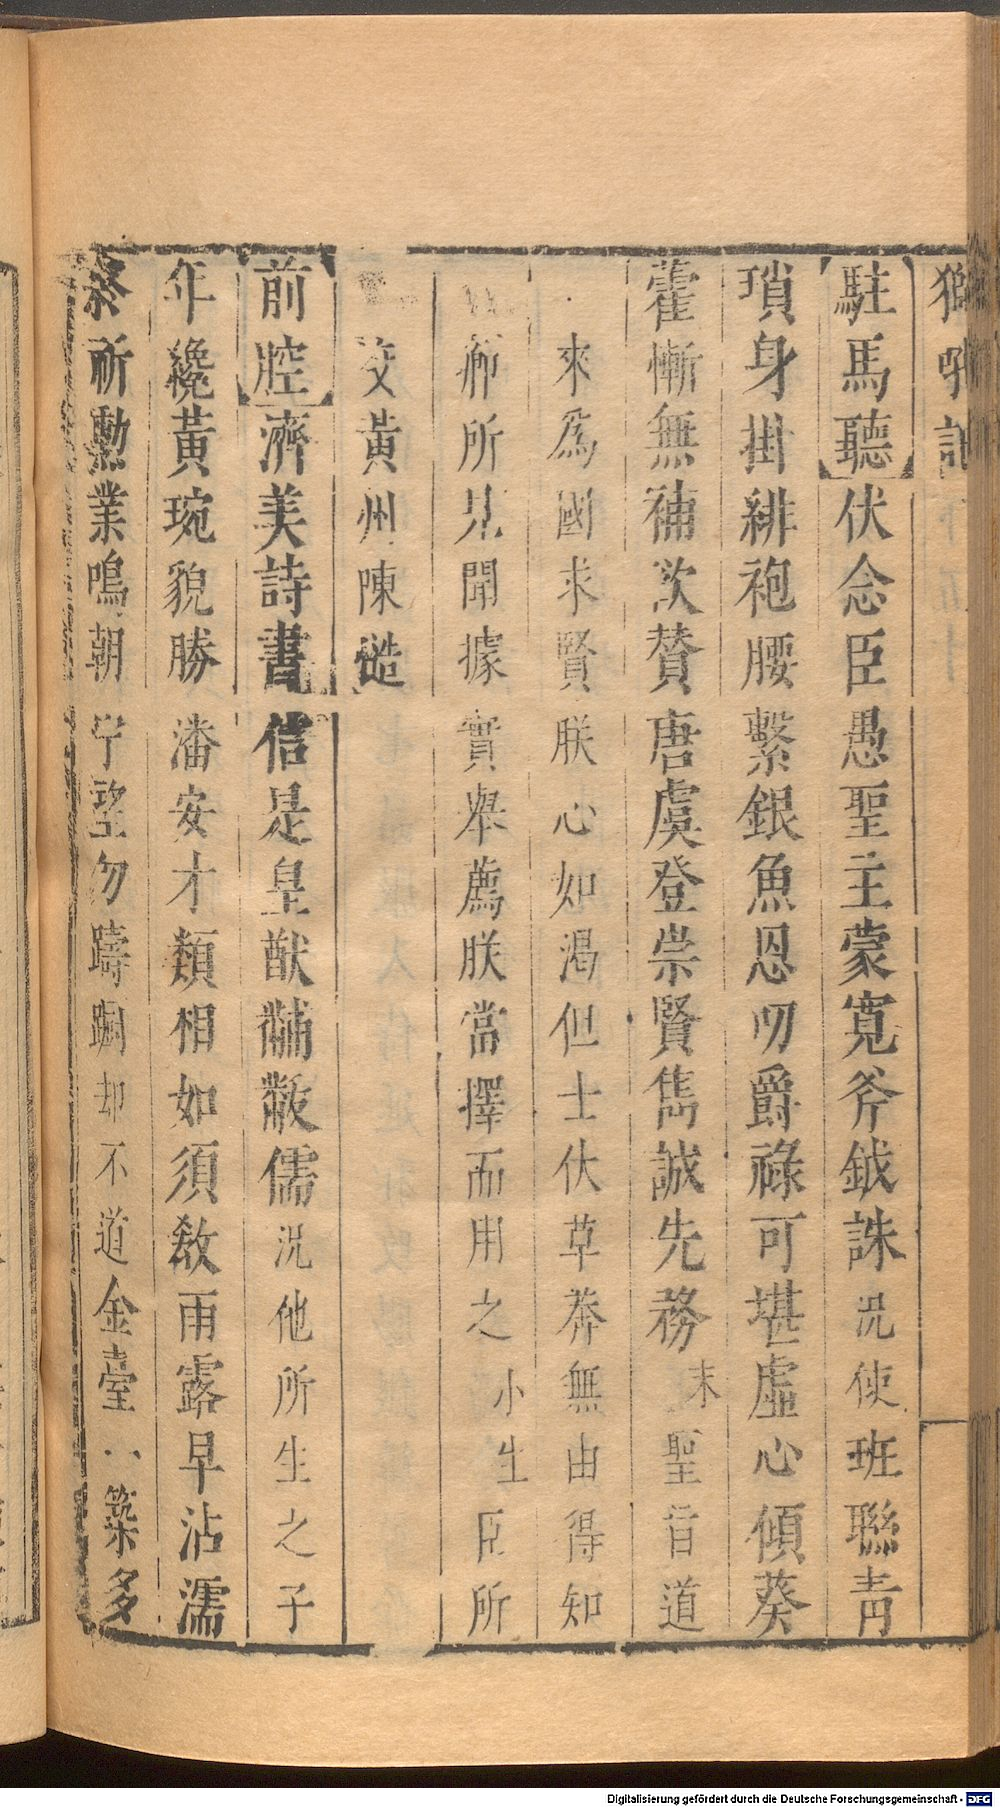 獅吼記
駐馬聽伏念臣愚聖主蒙寬斧鉞誅況使班聯青
瑣身掛緋袍腰繫銀魚恩叨爵祿可堪虛心傾葵
藿慚無補汝贊唐虞登崇賢雋誠先務末聖旨道
來爲國求賢朕心如渴但士伏草莽無由得知
卿所見聞據實舉薦朕當擇而用之小生臣所
交黃州陳慥
前腔濟美詩書信是皇猷黼黻儒況他所生之子
年纔黃琬貌勝潘安才類相如須敎雨露早沾濡
祈勳業鳴朝宁望勿躊躕却不道金臺一築多
Digitalisierung gefördert durch die Deutsche Forschungsgemeinschaft - DFG